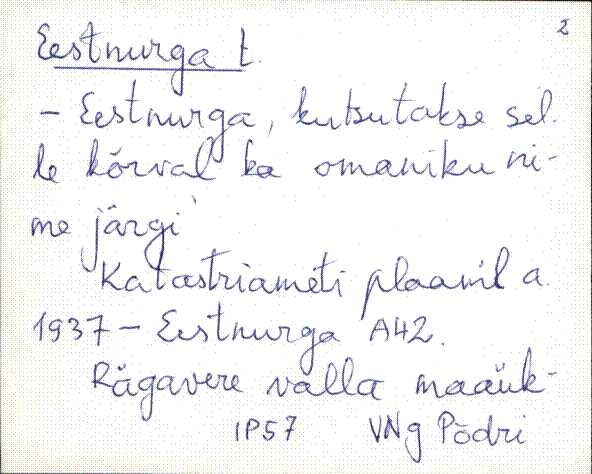 2
Eestnurga t.
- Eestnurga, kutsutakse sel-
le kõrval ka omaniku ni-
me järgi
Katastriameti plaanil a.
1937 - Eestnurga A42.
Rägavere valla maaük-
IP57 VNg Põdri